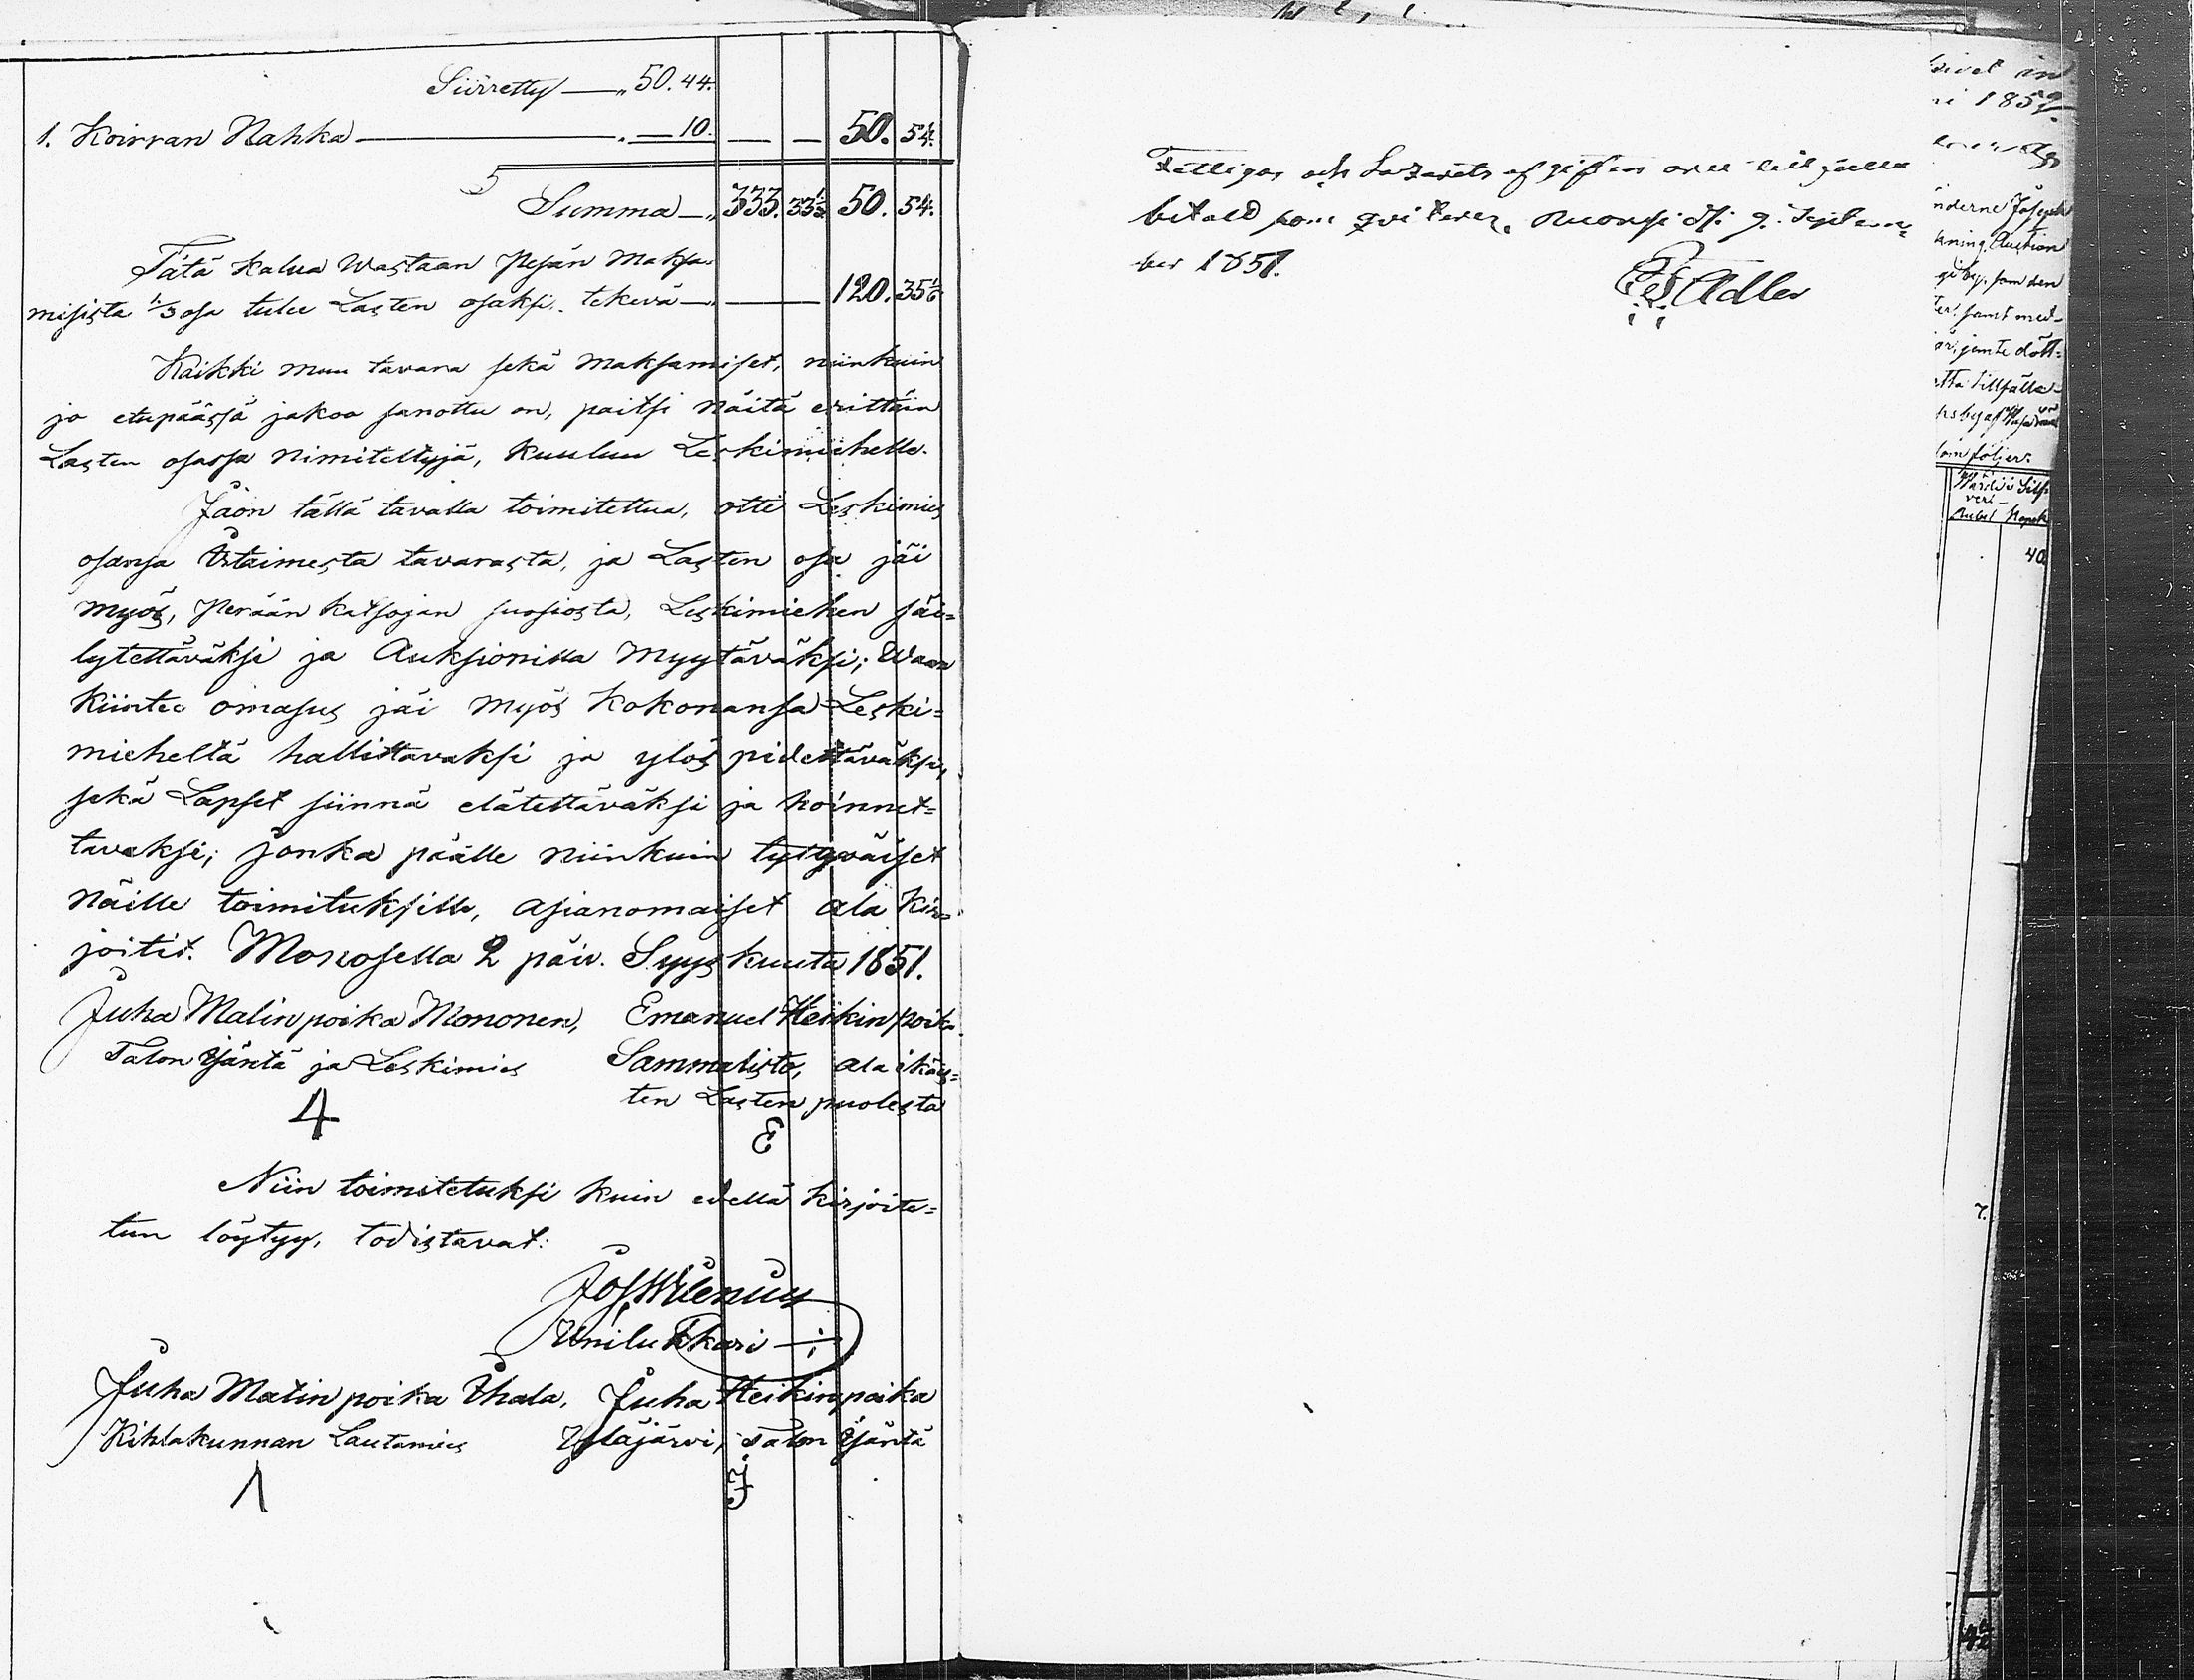 Siirretty — „ 50. 44.
1. Koirran Nahka — . — 10. — — 50. 54.
Summa — „ 333. 33⅓ 50. 54.
Tätä kalua Wastaan Pesän Maksa-
misista ⅓ osa tulee Lasten osaksi. tekevä — 120. 35⅙
Kaikki muu tavara sekä Maksamiset, niinkuin
jo etupäässä jakoa sanottu on, paitsi näitä erittäin
Lasten osassa Nimitettyjä, kuuluu Leskimiehelle.
Jaon tällä tavalla toimitettua, otti Leskimies
osansa Irtaimesta tavarasta, ja Lasten osa jäi
myös, Perään katsojan suosiosta, Leskimiehen säi=
lytettäväksi ja Auksionilla Myytäväksi; Waan
kiintee omasus jäi myös kokonansa Leski=
mieheltä hallittavaksi ja ylös pidettäväksi,
sekä Lapset siinnä elätettäväksi ja koinnet=
tavaksi; jonka päälle niinkuin tytyväiset
näille toimituksille, asianomaiset ala kir=
joitit. Monosella 2 päiv. Syys kuuta 1851.
Juha Matin poika Mononen, Emanuel Heikin poika
Talon Isäntä ja Leskimies Sammalisto, ala ikäis=
ten Lasten puolesta
4 E
Niin toimitetuksi kuin edellä kirjoite=
tun löytyy, todistavat:
Jos Wilenius
Unilukkari
Juha Matin poika Ihala, Juha Heikin poika
Kihlakunnan Lautamies Yläjärvi, Talon Isäntä
Fattigas och Lazarets afgiften
betald som qviterer, Nuorsi d. 9. Septem=
ber 1851.
Adler
1852
nderne Joseph
kning, Auction
som den
samt med-
jemte dött=
tillfälle
som följer:
Rubel Kopek
40
7.